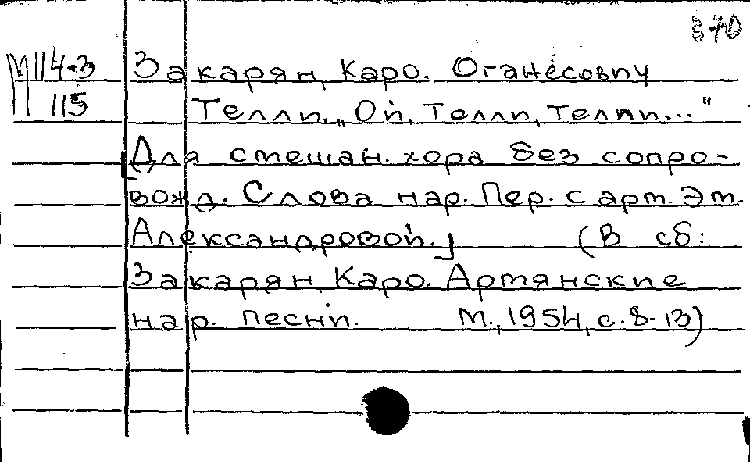 370
М114-3 Закарян, Каро. Оганесович
115 Телли. „Ой, Телли, Телли..."
[Для смешан. хора без сопро-
вожд. Слова нар. Пер. с арм. Эт.
Александровой.] (В сб:
Закарян, Каро. Армянские
нар. песни. М., 1954, с. 8-13)